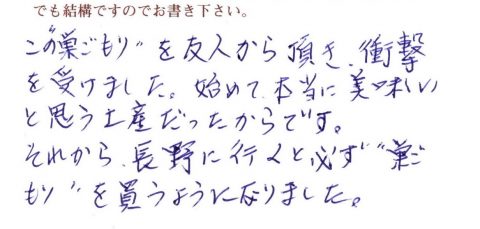 でも結構ですのでお書き下さい。
この"巣ごもり"を友人から頂き、衝撃
を受けました。始めて、本当に美味しい
と思う土産だったからです。
それから、長野に行くと必ず"巣ご
もり"を買うようになりました。